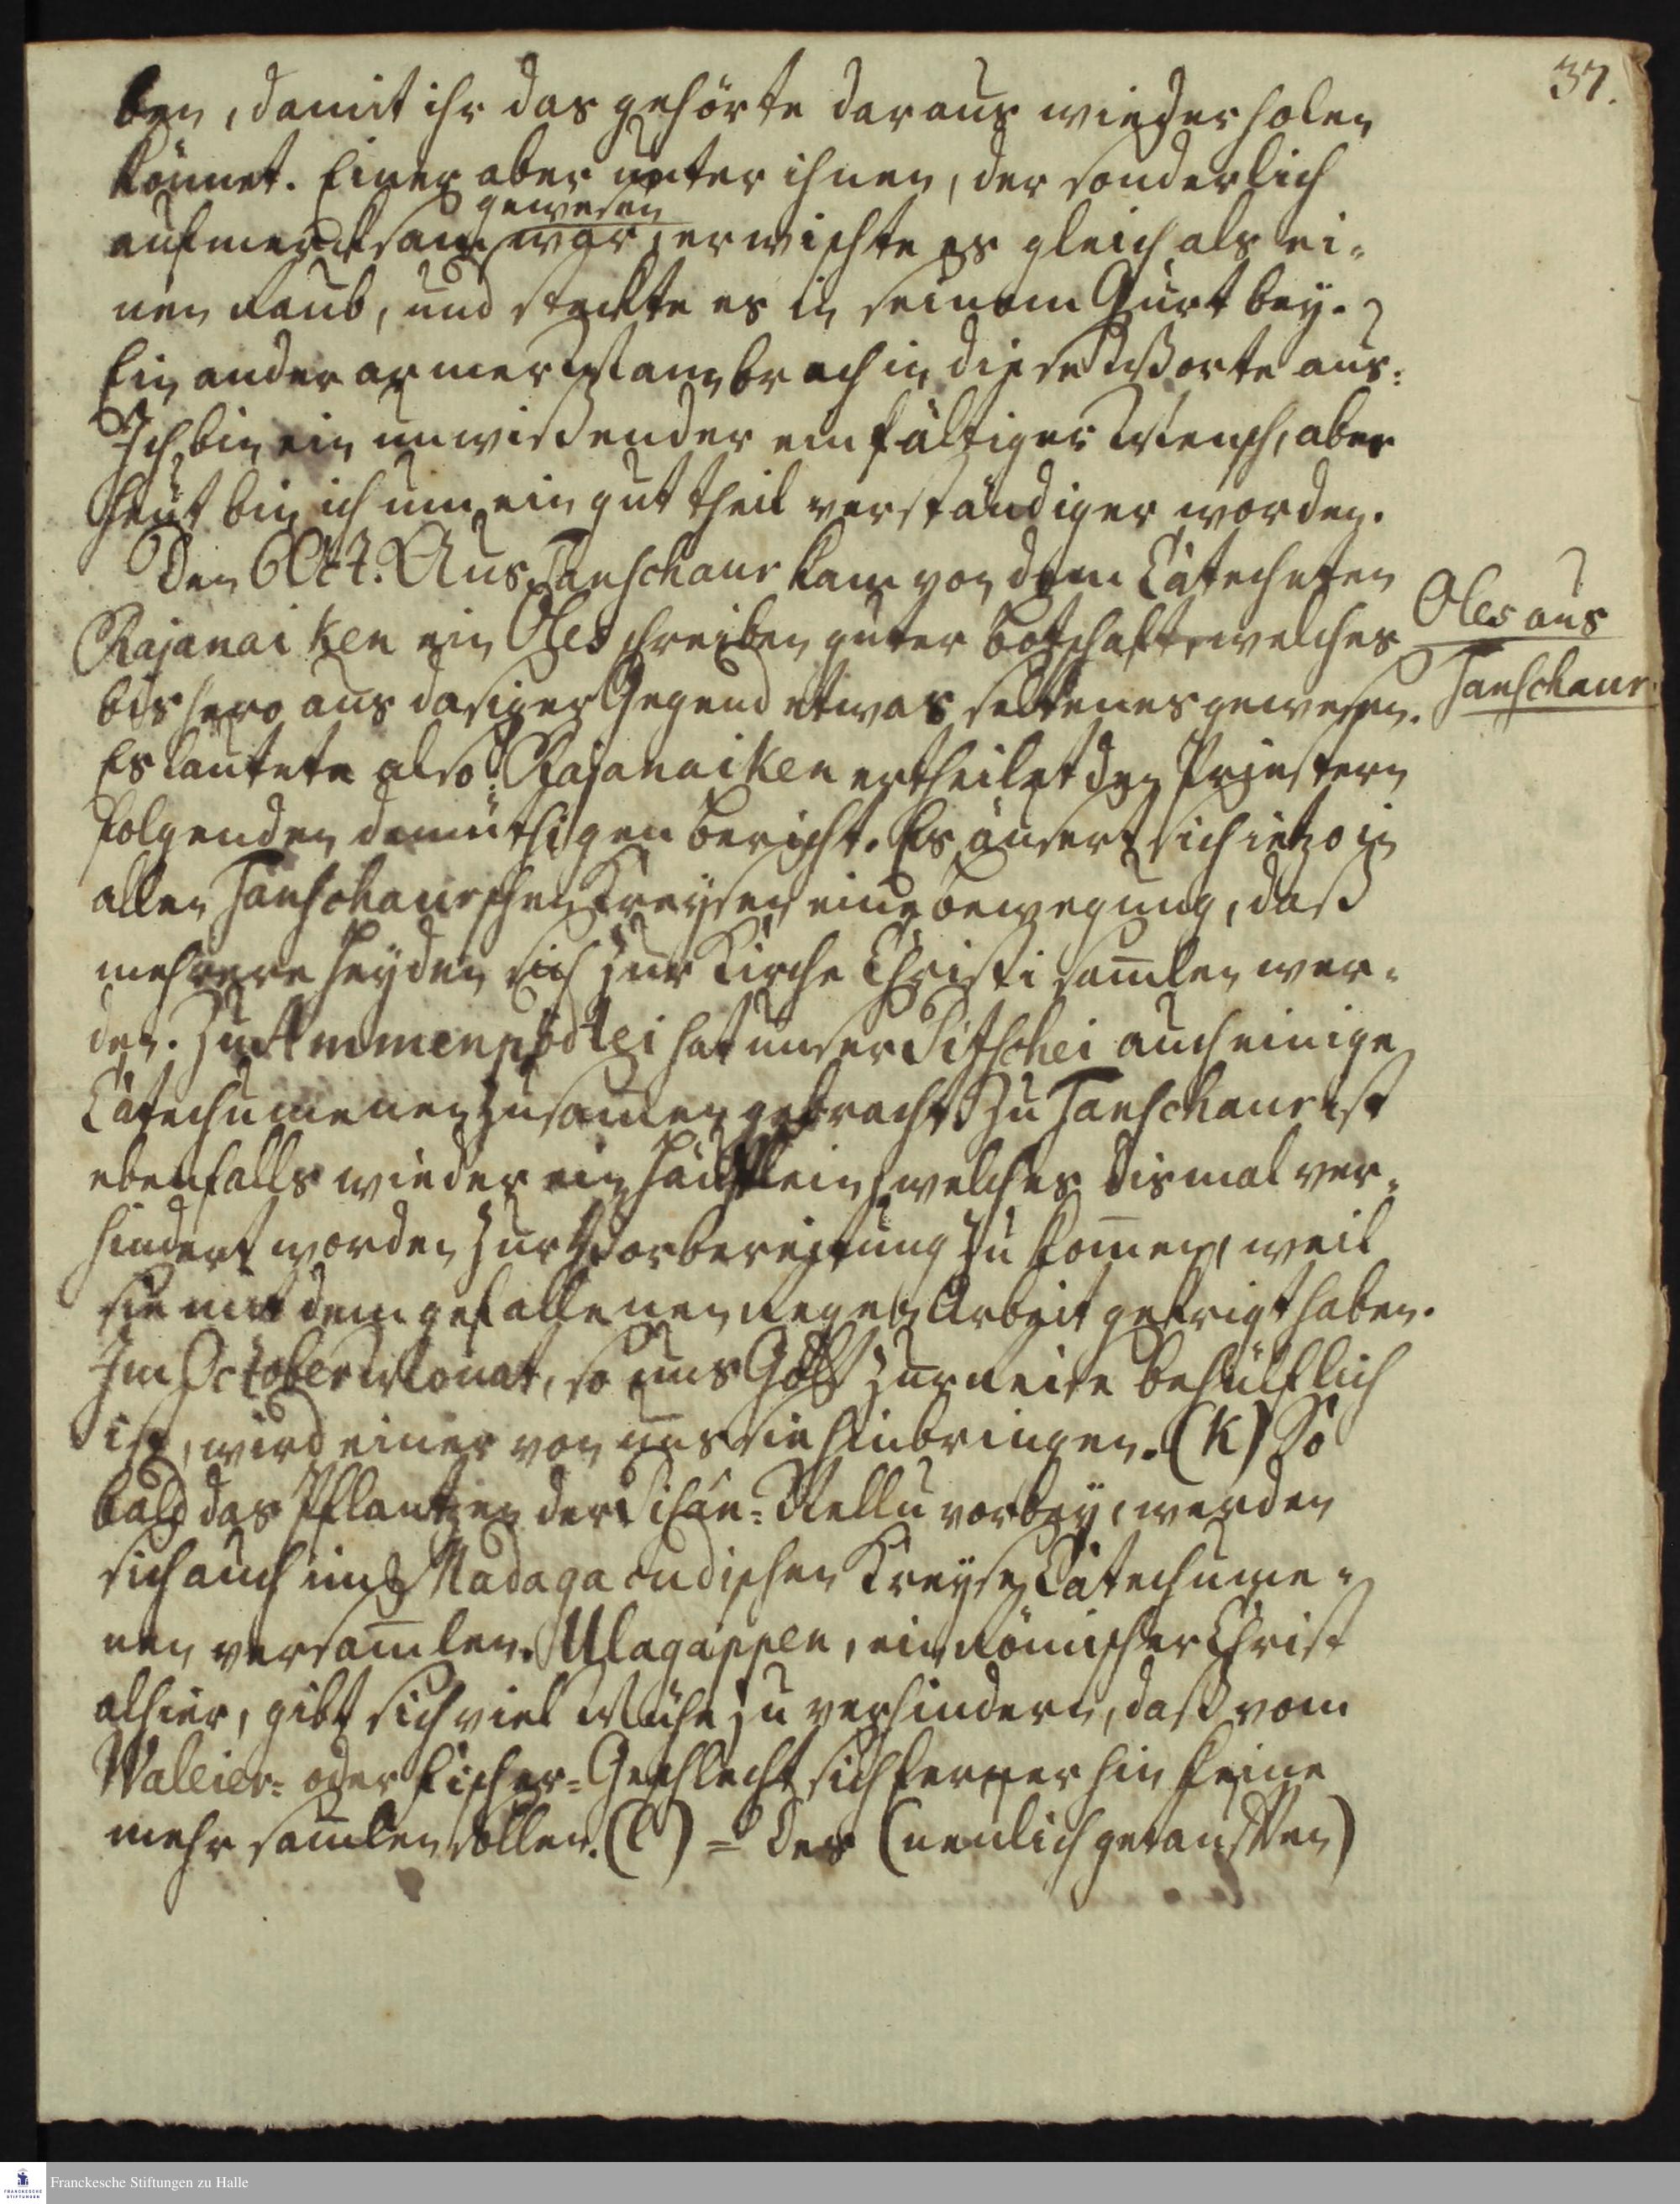 37.
ben, damit ihr das gehörte daraus wiederholen
könnet. Einer aber unter ihnen, der sonderlich
gewesen
aufmercksam war, erwischte es gleich als ei-
nen Raub, und steckte es in seinem Gurt bey.
Ein ander armer Mann brach in diese Worte aus:
Ich bin ein unwißender einfältiger Mensch, aber
heut bin ich um ein gut theil verständiger worden.
Den 6 Oct. Aus Tanschaur kam von dem Catecheten
Rajanaiken ein Oles schreiben guter Botschaft, welches
bishero aus dasiger Gegend etwas seltenes gewesen.
Oles aus
Tanschaur.
Es lautete also: Rajanaiken ertheilet den Priestern
folgenden demüthigen Bericht. Es äusert sich ietzo in
allen Tanschaurschen Kreysen eine Bewegung, daß
mehrere Heyden sich zur Kirche Christi samlen wer-
den. Zu Ammenpödtei hat unser Sitschei auch einige
Catechumenen zusamen gebracht. Zu Tanschaur ist
ebenfalls wieder ein Häuflein, welches dismal ver-
hindert worden zur Vorbereitung zu komen, weil
sie mit dem gefallenen Regen Arbeit gekrigt haben.
Im October Monat, so uns Gott zur Reise behülflich
ist, wird einer von uns sie hinbringen. (k) So
bald das Pflantzen der Tschan-Nellu vorbey, werden
sich auch im Madagacudischen Kreyse Catechume-
nen versamlen. Ulagappen, ein Römischer Christ
alhier, gibt sich viel Mühe zu verhindern, daß vom
Waleier- oder Fischer-Geschlecht sich fernerhin keine
mehr samlen sollen. (l) = Der (neulich getauften)
Franckesche Stiftungen zu Halle